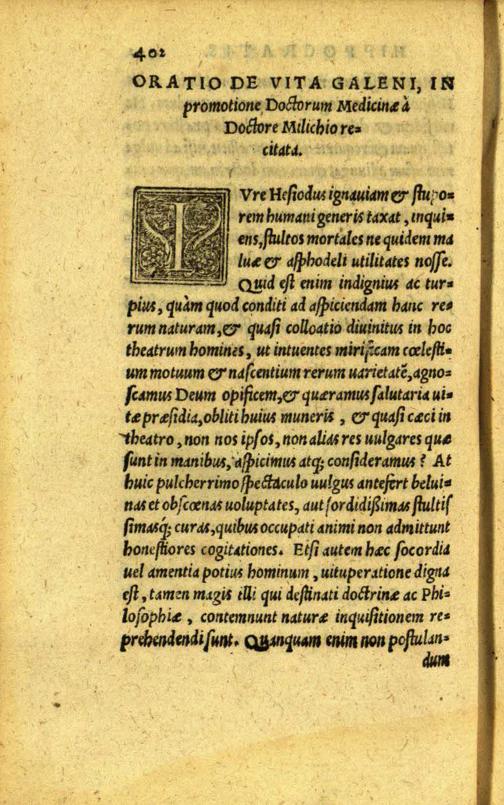 402
ORATIO DE VITA GALENI, IN
promotione Doctorum Medicinæ à
Doctore Milichio re=
citata.
IVre Hesiodus ignauiam & stupo=
rem humani generis taxat, inqui=
ens, stultos mortales ne quidem ma
luæ & asphodeli utilitates nosse.
Quid est enim indignius ac tur=
pius, quàm quod conditi ad aspiciendam hanc re=
rum naturam, & quasi colloatio diuinitus in hoc
theatrum homines, ut intuentes mirificam cœlesti=
um motuum & nascentium rerum uarietatẽ, agno=
scamus Deum opificem, & quæramus salutaria ui=
tæ præsidia, obliti huius muneris, & quasi cæci in
theatro, non nos ipsos, non alias res uulgares quæ
sunt in manibus, aspicimus atq; consideramus? At
huic pulcherrimo spectaculo uulgus antefert belui=
nas et obscœnas uoluptates, aut sordidißimas stultis
simasq; curas, quibus occupati animi non admittunt
honestiores cogitationes. Etsi autem hæc socordia
uel amentia potius hominum, uituperatione digna
est, tamen magis illi qui destinati doctrinæ ac Phi=
losophiæ, contemnunt naturæ inquisitionem re=
prehendendi sunt. Quanquam enim non postulan=
dum